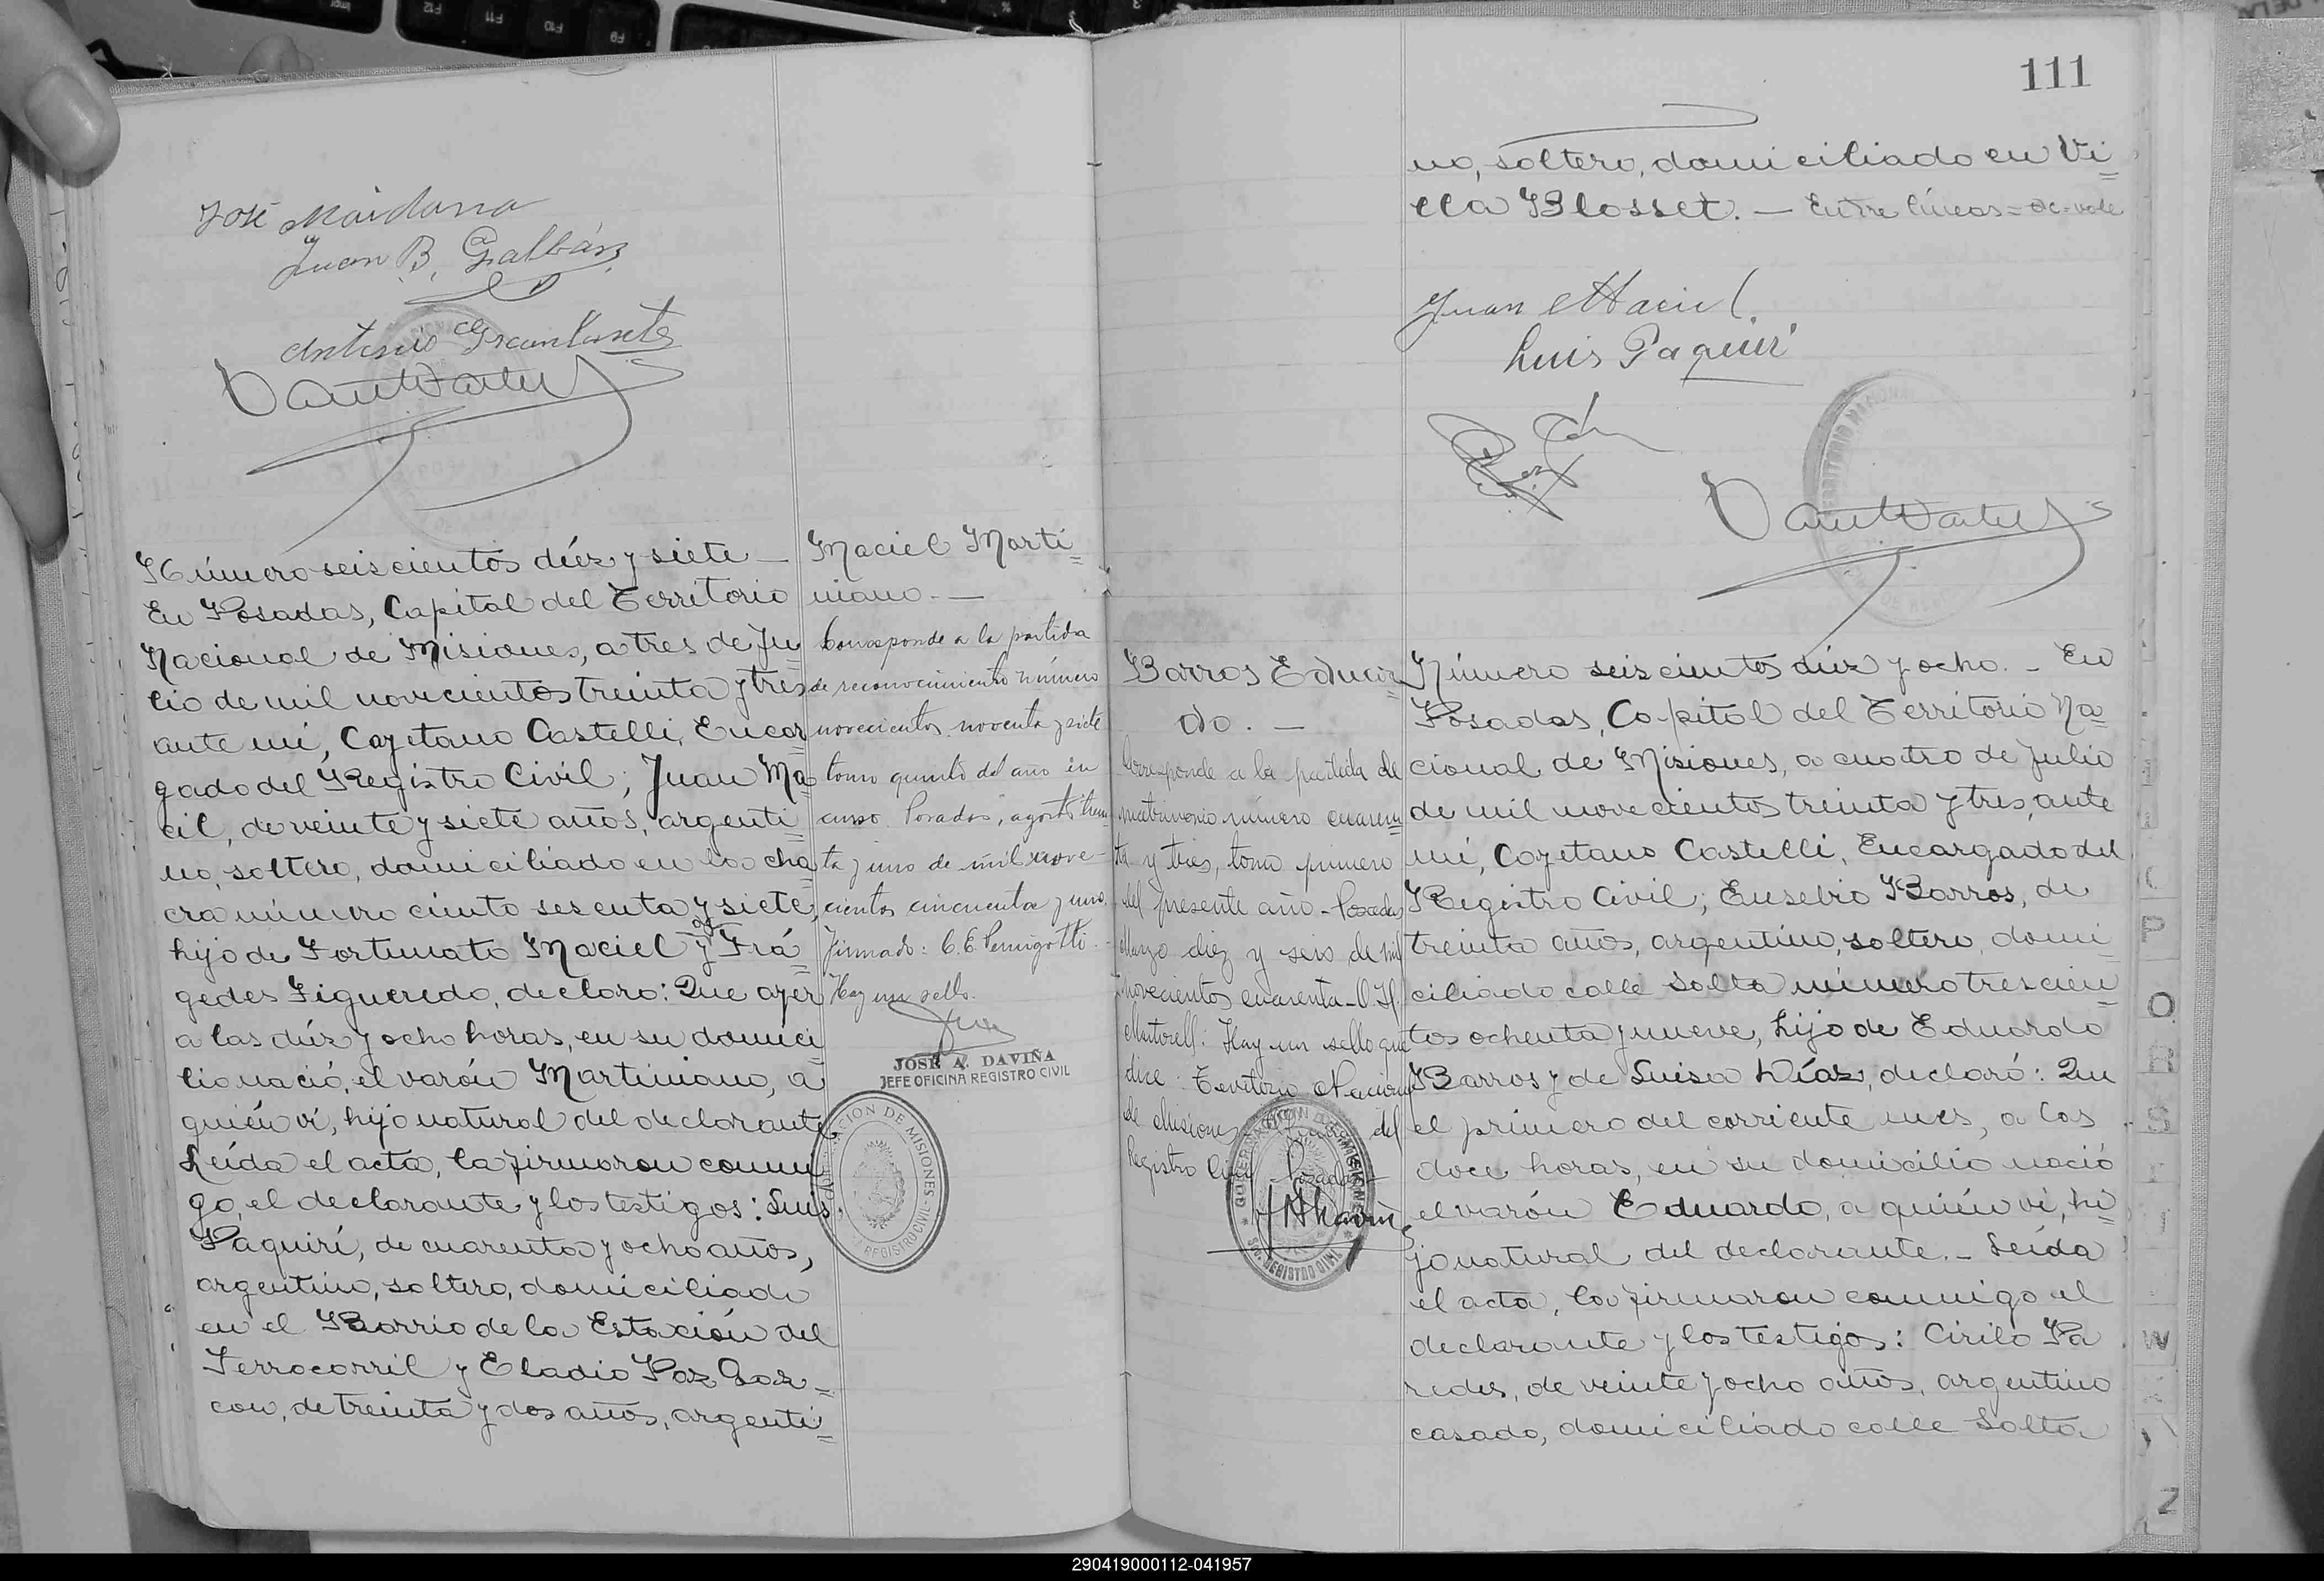 José Maidana
Juan B. Galbán
Antonio
Número seiscientos diéz y siete —
En Posadas, Capital del Territorio
Nacional de Misiones, a tres de Ju=
lio de mil novecientos treinta y tres
ante mí, Cayetano Castelli, Encar=
gado del Registro Civil; Juan Ma=
ciel, de veinte y siete años, argenti=
no, soltero, domiciliado en la cha=
cra número ciento sesenta y siete,
hijo de Fortunato Maciel y de Frá=
gedes Figueredo, declaro: Que ayer
a las diéz y ocho horas, en su domici=
lio nació, el varón Martiniano, a
quién ví, hijo natural del declarante.
Leída el acta, la firmaron conmi=
go, el declarante y los testigos: Luis
Paquirí, de cuarenta y ocho años,
argentino, soltero, domiciliado
en el Barrio de la Estación del
Ferrocorril y Eladio Paz Gar=
con, de treinta y dos años, argenti=
Maciel Marti=
niano. —
Corresponde a la partida
de reconocimiento número
novecientos noventa y siete
tomo quinto del año en
curso. Posadas, agosto trein=
ta y uno de mil nove-
cientos cincuenta y uno.
Firmado: C. E. Pernigotti.
Hay un sello.
JOSÉ A. DAVIÑA
JEFE OFICINA REGISTRO CIVIL
GOBERNACION DE MISIONES
REGISTRO CIVIL
111
no, soltero, domiciliado en Vi=
lla Blosset. — Entre líneas = de = vale
Juan Maciel.
Luis Paquirí
Barros Eduar=
do. —
Corresponde a la partida de
matrimonio número cuaren=
ta y tres, tomo primero
del presente año - Posadas
Marzo diez y seis de mil
novecientos cuarenta - O. H.
Martorell: Hay un sello que
dice: Territorio Nacional
de Misiones del
Registro Civil Posadas
GOBERNACION DE MISIONES
REGISTRO CIVIL
Número seiscientos diéz y ocho. - En
Posadas, Capital del Territorio Na=
cional de Misiones, a cuatro de Julio
de mil novecientos treinta y tres, ante
mí, Cayetano Castelli, Encargado del
Registro Civil; Eusebio Barros, de
treinta años, argentino, soltero, domi=
ciliado calle Salta número trescien=
tos ochenta y nueve, hijo de Eduardo
Barros y de Luisa Díaz, declaró: Que
el primero del corriente mes, a las
doce horas, en su domicilio nació
el varón Eduardo, a quién ví, hi=
jo natural del declarante. - Leída
el acta, la firmaron conmigo el
declarante y los testigos: Cirilo Pa
redes, de veinte y ocho años, argentino
casado, domiciliado calle Salta
P
Q
R
S
W
Z
290419000112-041957